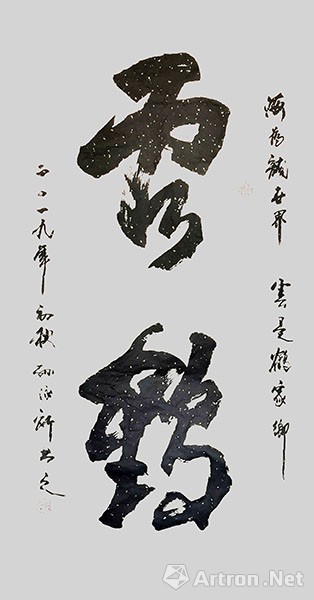 海為龍世界 雲是鶴家鄉
雲鶴
二〇一九年初秋 書之
Artron.Net